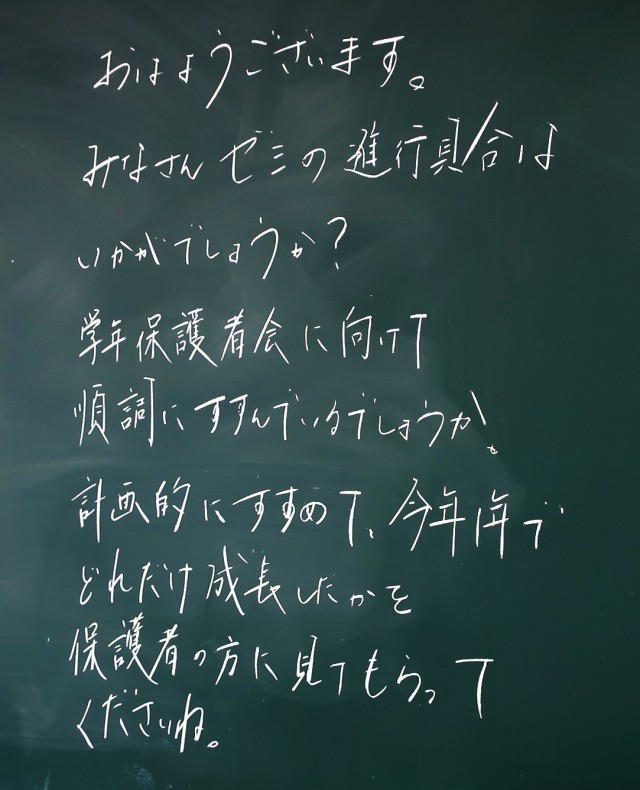 おはようございます。
みなさんゼミの進行具合は
いかがでしょうか?
学年保護者会に向けて
順調にすすんでいるでしょうか。
計画的にすすめて、今年1年で
どれだけ成長したかを
保護者の方に見てもらって
くださいね。